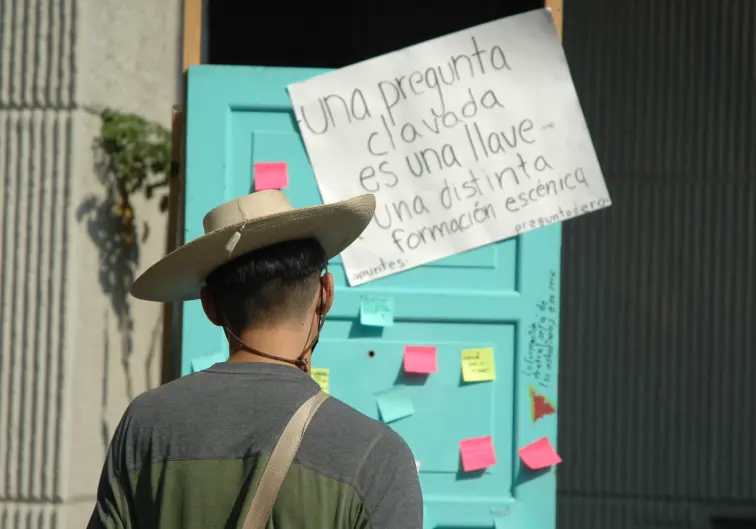 una pregunta
clavada
es una llave
una distinta
formación escénica
apuntes.
preguntadero